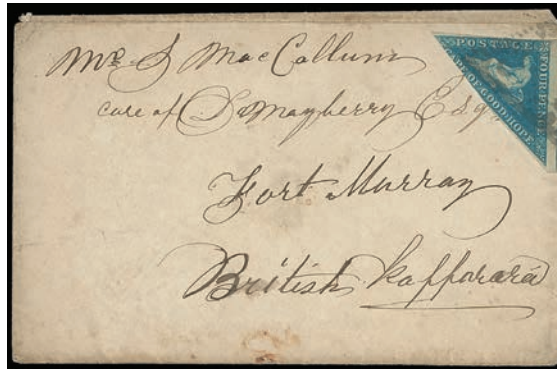 Mr. J MacCallum
care of D Mayberry Esq
Fort Murray
British Kaffararia
POSTAGE
FOURPENCE
CAPE OF GOOD HOPE